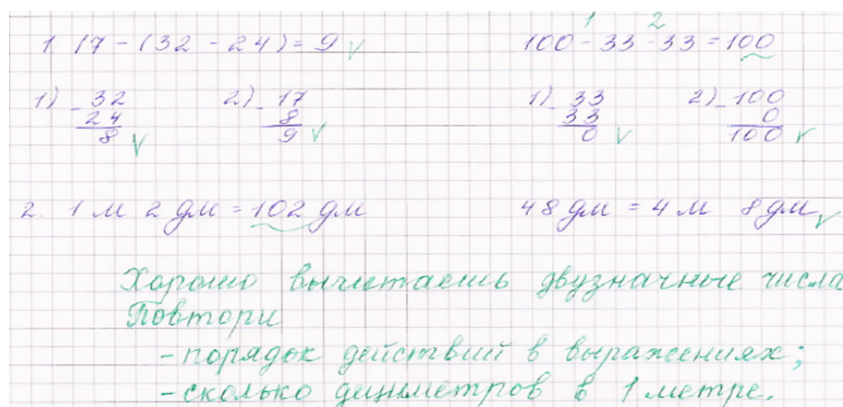 1 17 - (32 - 24) = 9 V 100 - 33 - 33 = 100
1 2
1) - 32 2) - 17 1) - 33 2) - 100
24 8 33 0
8 V 9 V 0 V 100 V
2. 1 м 2 дм = 102 дм 48 дм = 4 м 8 дм V
Хорошо вычитаешь двузначные числа
Повтори
- порядок действий в выражениях;
- сколько дециметров в 1 метре.